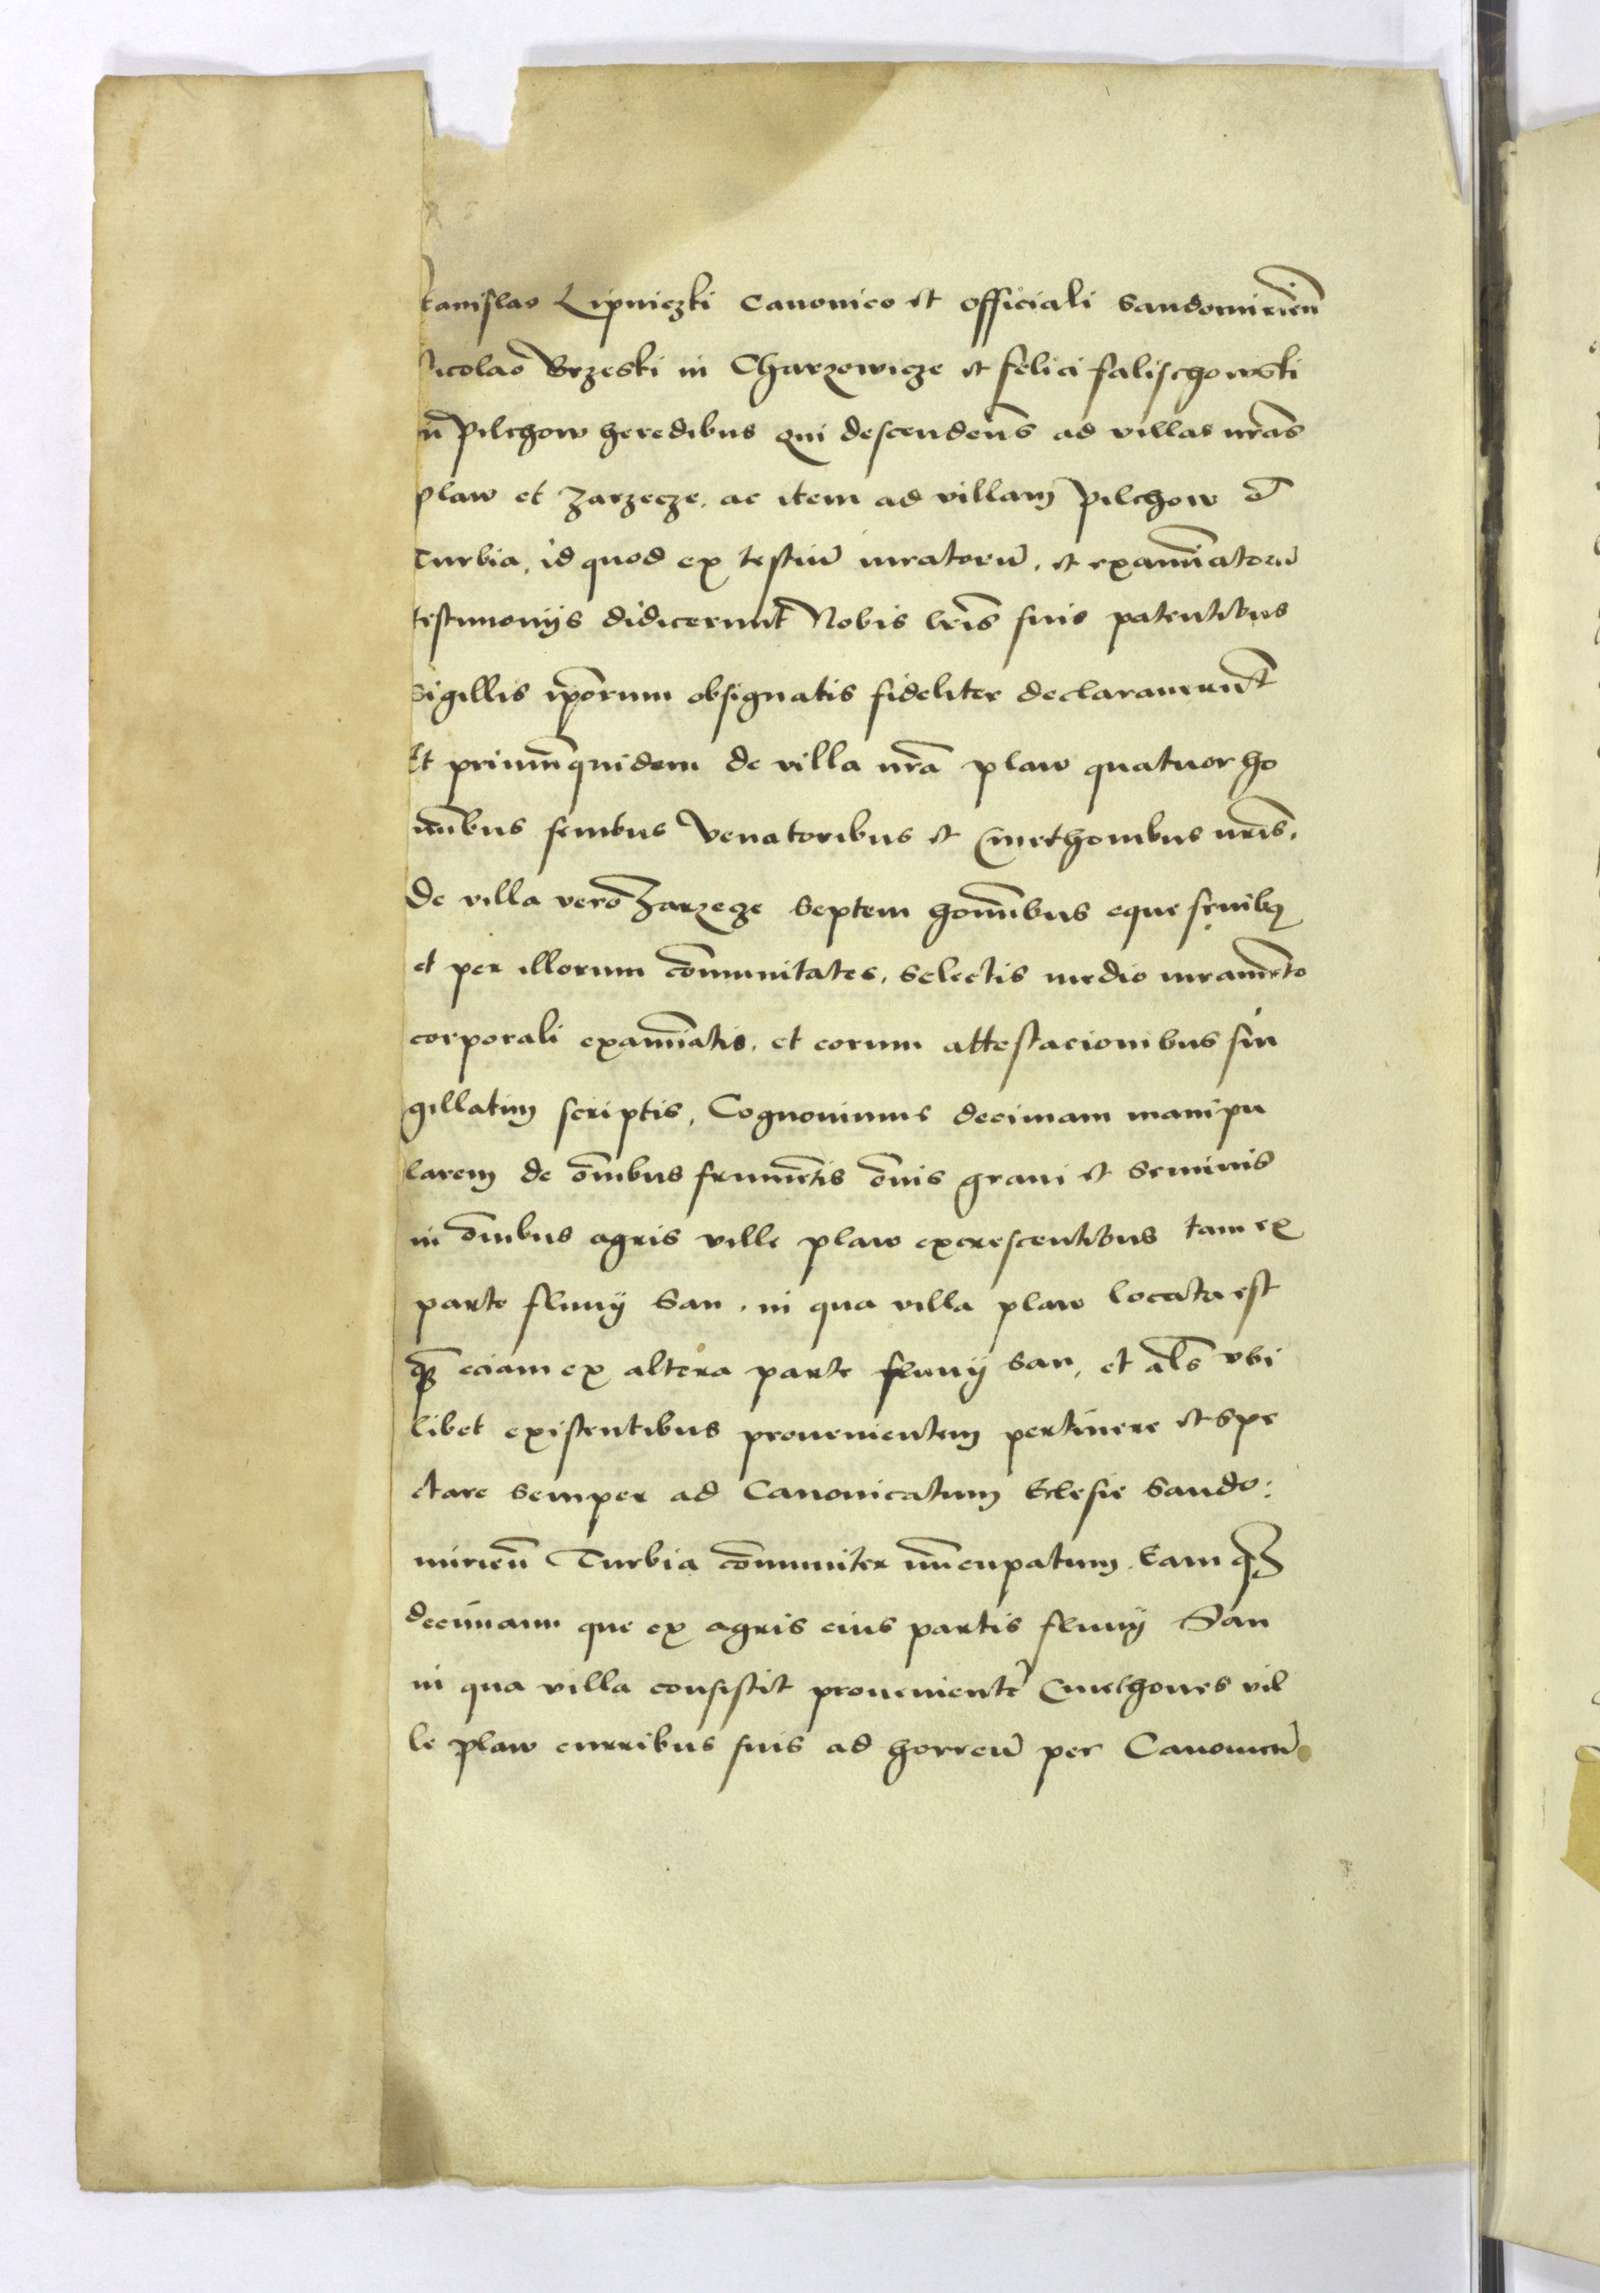 tanislao Lipniczki Canonico et officiali Sandomirień
icolao Brzeski in Charzowicze et felici falischowski
n Pilchow heredibus qui descendens̄ ad villas nr̄as
plaw et Zarzecze. ac item ad villam Pilchow et
Turbia, id quod ex testiū iuratorū. et examīatorū
testimonijs didicerunt Nobis lr̄is suis patentibus
Sigillis ip̄orum obsignatis fideliter declarauerūt
Et primūquidem de villa nr̄a plaw quatuor ho
īnibus senibus Venatoribus et Cmethonibus nr̄is.
de villa vero Zarzecze septem homībus eque senibꝫ
et per illorum cōmunitates. Selectis medio iuramēto
corporali examīatis. et eorum attestacionibus sin
gillatim scriptis, Cognouimus decimam manipu
larem de ōmībus frumētis ōnis grani et seminis
in ōmībus agris ville plaw excrescentibus tam ex
parte fluuij San. in qua villa plaw locata est
qꝫ̄ eciam ex altera parte fluuij San, et al̄s vbi
libet existentibus prouenientem pertinere et spe
ctare semper ad Canonicatum Ecclesie Sando:
mirień Turbia cōmuniter nūcupatum. Eam qꝫ
decimam que ex agris eius partis fluuij San
in qua villa consistit prouenientē Cmethones vil
le plaw curribus suis ad horreū per Canonicū